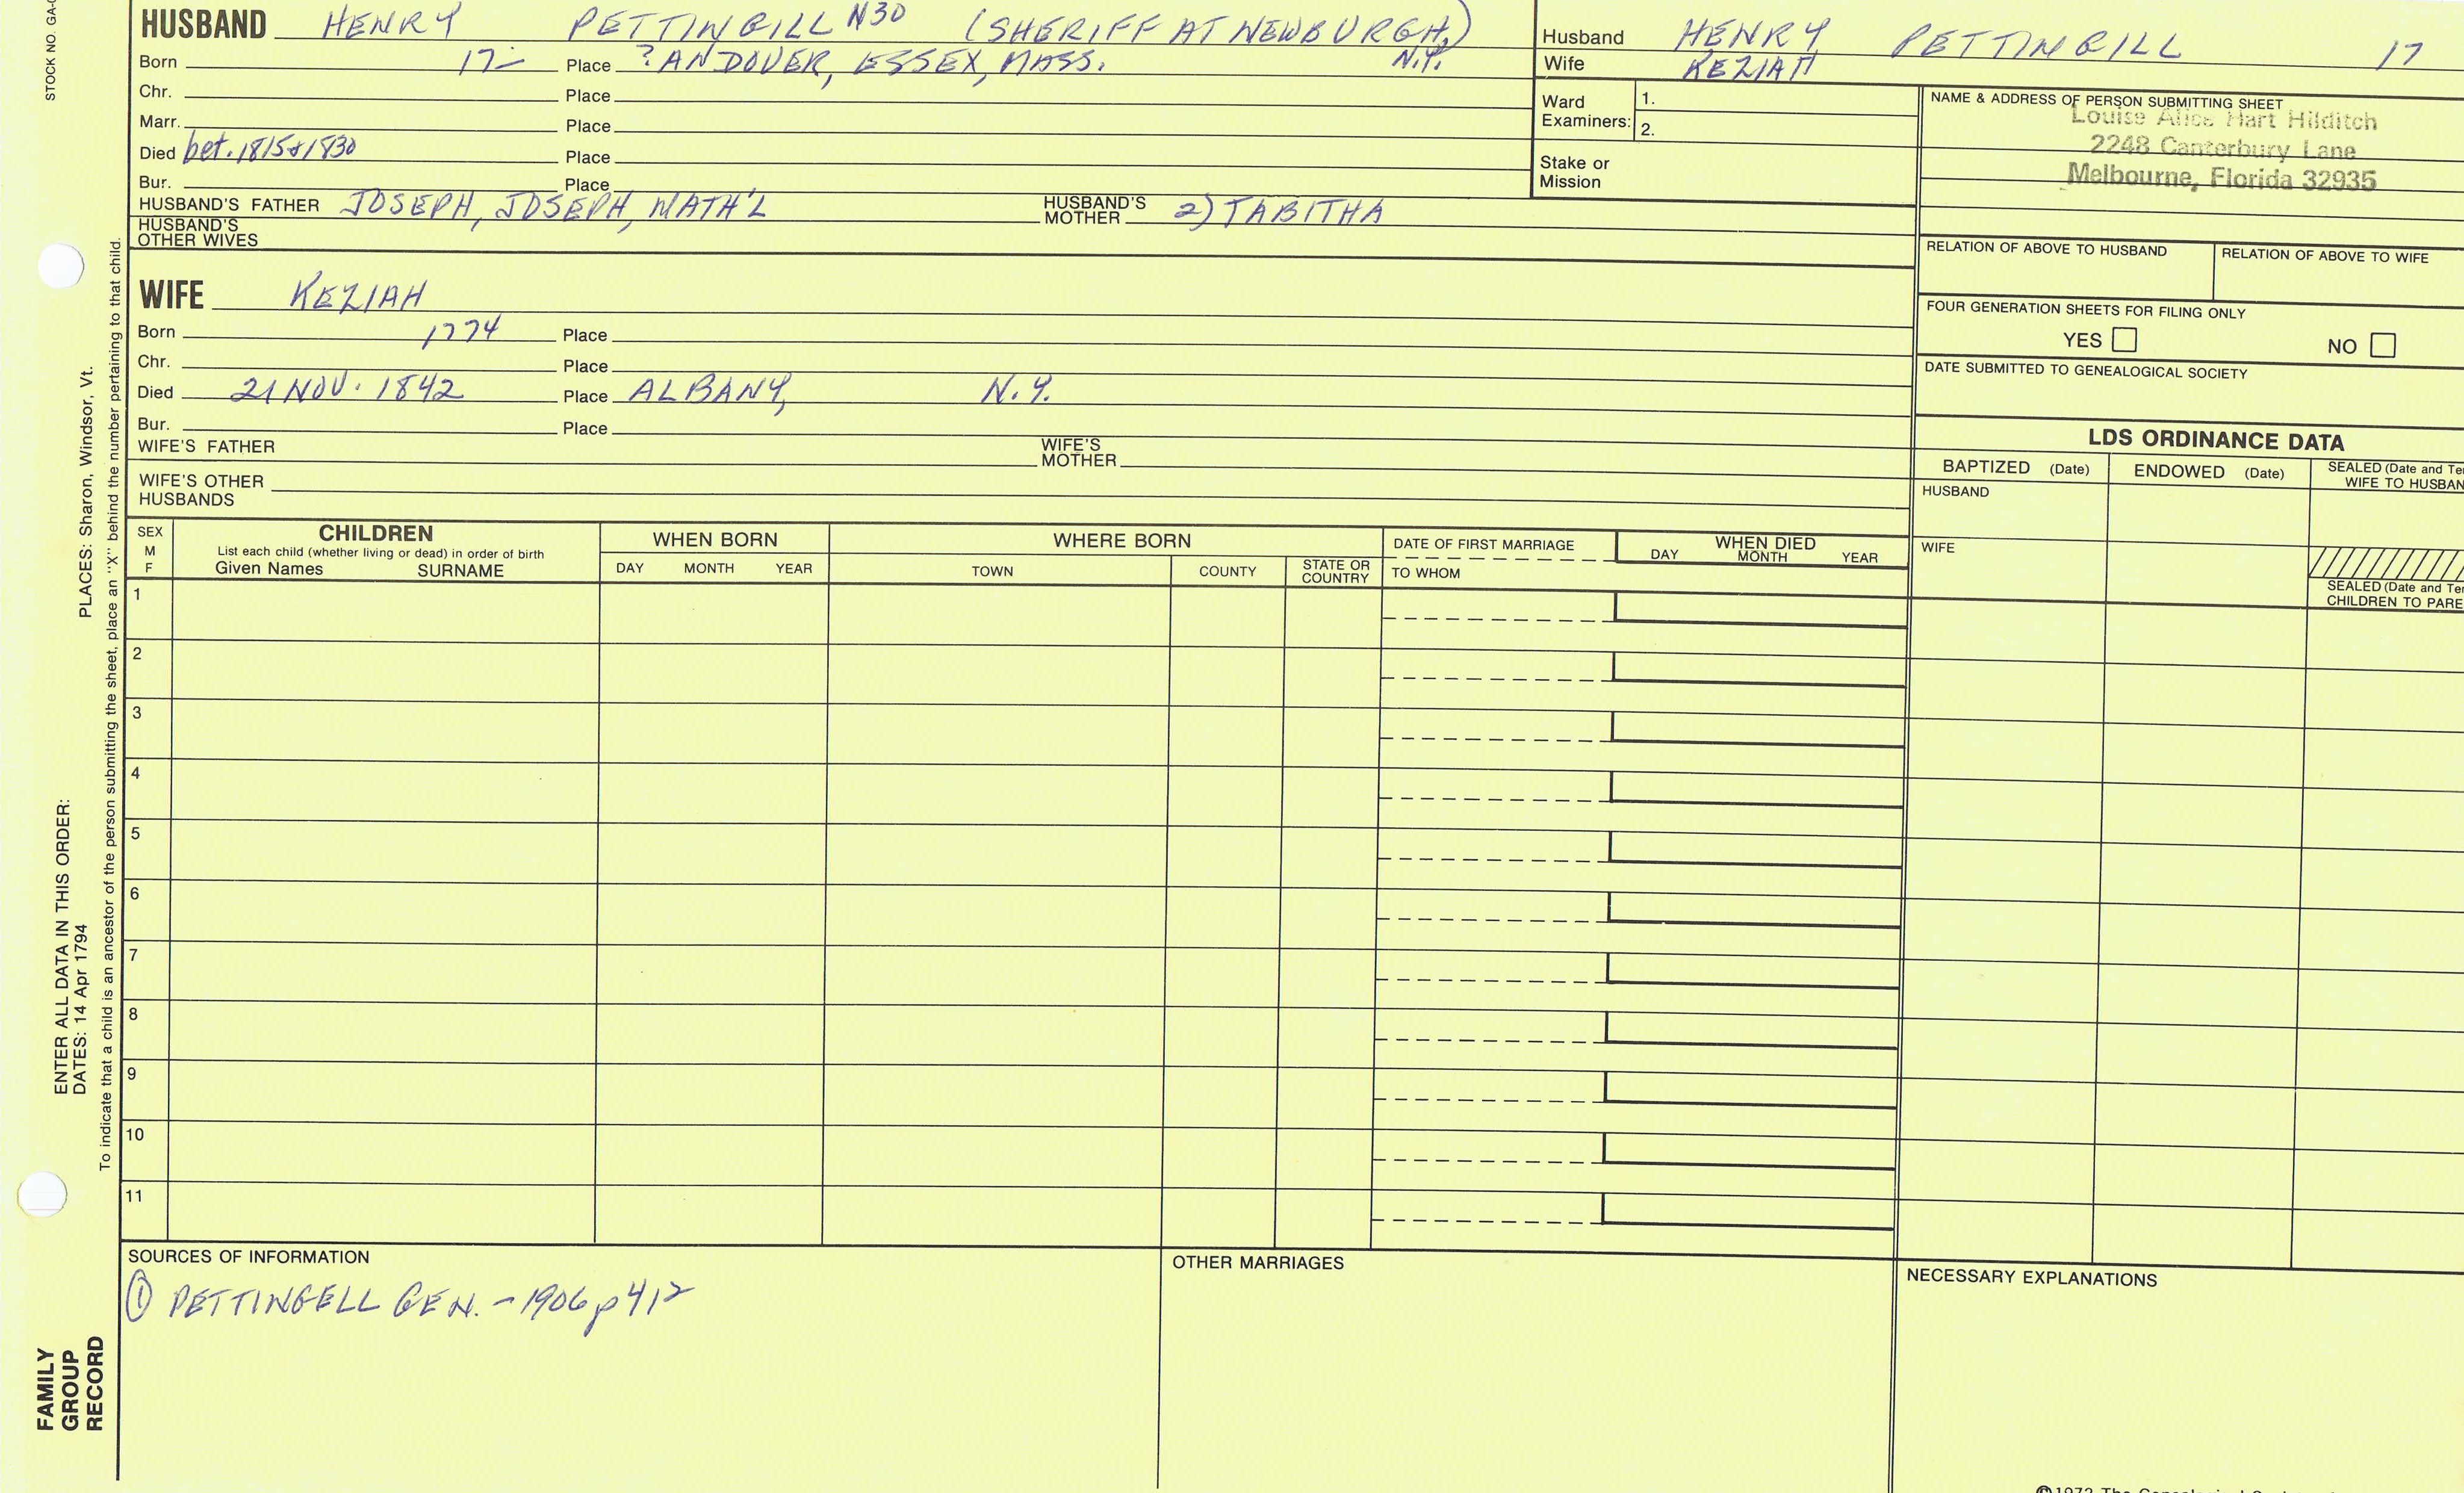 STOCK NO. GA-
HUSBAND HENRY PETTINGILL N30 (SHERIFF AT NEWBURGH, N.Y.)
Born 17- Place ? ANDOVER, ESSEX, MASS.
Chr. Place
Marr. Place
Died bet. 1815 & 1830 Place
Bur. Place
HUSBAND'S FATHER JOSEPH, JOSEPH, NATH'L HUSBAND'S MOTHER 2) TABITHA
HUSBAND'S OTHER WIVES
WIFE KEZIAH
Born 1774 Place
Chr. Place
Died 21 NOV. 1842 Place ALBANY, N.Y.
Bur. Place
WIFE'S FATHER WIFE'S MOTHER
WIFE'S OTHER HUSBANDS
Husband HENRY PETTINGILL 17
Wife KEZIAH
Ward Examiners: 1.
2.
Stake or Mission
NAME & ADDRESS OF PERSON SUBMITTING SHEET
Louise Alice Hart Hilditch
2248 Canterbury Lane
Melbourne, Florida 32935
RELATION OF ABOVE TO HUSBAND RELATION OF ABOVE TO WIFE
FOUR GENERATION SHEETS FOR FILING ONLY
YES NO
DATE SUBMITTED TO GENEALOGICAL SOCIETY
LDS ORDINANCE DATA
BAPTIZED (Date) ENDOWED (Date) SEALED (Date and Te
WIFE TO HUSBAN
HUSBAND
WIFE
SEALED (Date and Te
CHILDREN TO PARE
SEX M F
CHILDREN
List each child (whether living or dead) in order of birth
Given Names SURNAME
WHEN BORN
DAY MONTH YEAR
WHERE BORN
TOWN COUNTY STATE OR COUNTRY
DATE OF FIRST MARRIAGE
TO WHOM
WHEN DIED
DAY MONTH YEAR
1
2
3
4
5
6
7
8
9
10
11
SOURCES OF INFORMATION
① PETTINGELL GEN. - 1906 p 412
OTHER MARRIAGES
NECESSARY EXPLANATIONS
©1972 The Genealogical
ENTER ALL DATA IN THIS ORDER:
DATES: 14 Apr 1794 PLACES: Sharon, Windsor, Vt.
To indicate that a child is an ancestor of the person submitting the sheet, place an "X" behind the number pertaining to that child.
FAMILY
GROUP
RECORD